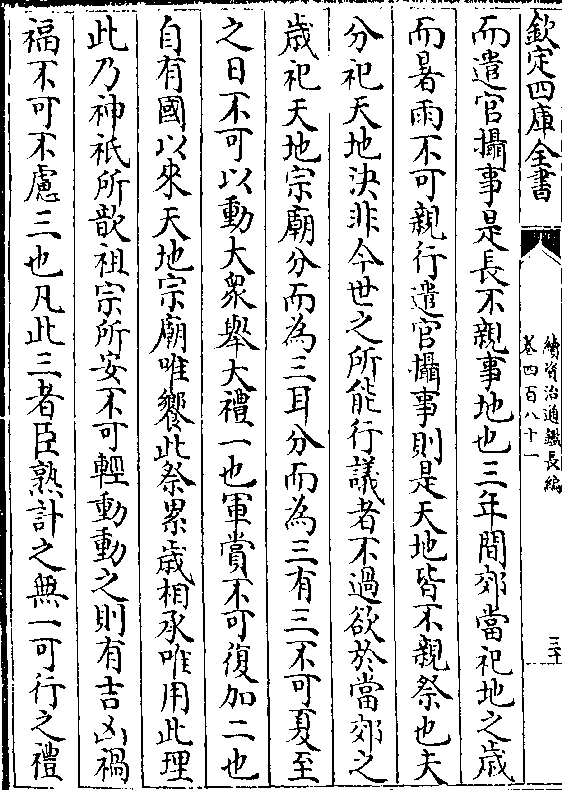 欽定四庫全書
續資治通鑑長編
卷四百八十一
三十
而遣官攝事是長不親事地也三年間郊當祀地之歲
而暑雨不可親行遣官攝事則是天地皆不親祭也夫
分祀天地決非今世之所能行議者不過欲於當郊之
歲祀天地宗廟分而為三耳分而為三有三不可夏至
之日不可以動大衆舉大禮一也軍賞不可復加二也
自有國以來天地宗廟唯饗此祭累歲相承唯用此理
此乃神祇所歆祖宗所安不可輕動動之則有吉凶禍
福不可不慮三也凡此三者臣熟計之無一可行之禮